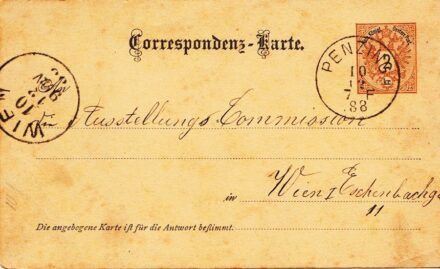 Correspondenz-Karte.
PENZING
10
12
7 F
88
WIEN
An
Ausstellungs Commission
in Wien I Eschenbachg
11
Die angebogene Karte ist für die Antwort bestimmt.